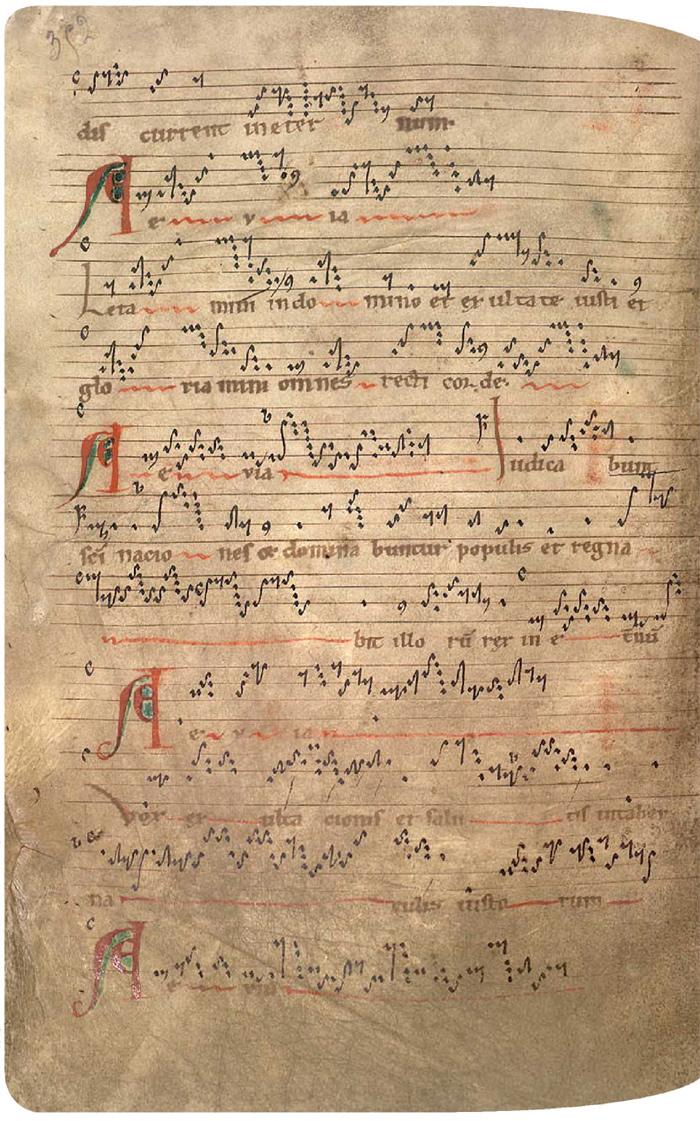 352
dis current in eter num.
A e v ia
Leta mini in do mino et exultate iusti et
glo ria mini omnes recti cor de.
A e via Iudica bunt
sci nacio nes & domina buntur populis et regna
bit illo rū rex in e tnū
A e v ia
Vox ex ulta cionis et salu tis in taber
na culis iusto rum
A e via